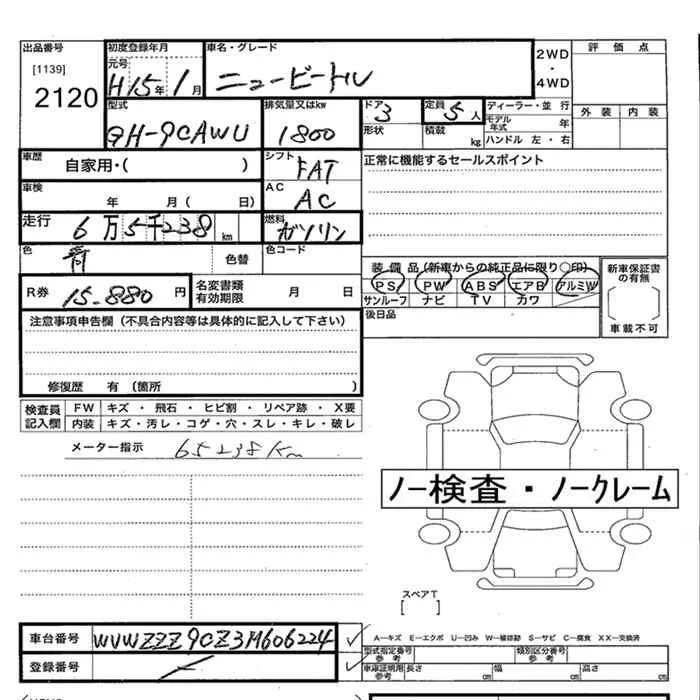 出品番号 初度登録年月 車名・グレード 2WD・4WD 評価点
[1139] 元号 H15年1月 ニュービートル
2120
型式 排気量又はkw ドア 3 定員 5人 ディーラー・並行 外装 内装
GH-9CAWU 1800 形状 積載 kg モデル年式 年
ハンドル 左・右
車歴 自家用・( ) シフト FAT 正常に機能するセールスポイント
車検 年 月( 日) AC AC
走行 6万5千238km 燃料 ガソリン
色 青 色替 色コード
装備品(新車からの純正品に限り○印) 新車保証書の有無
PS PW ABS エアB アルミW
サンルーフ ナビ TV カワ
R券 15-880円 名変書類有効期限 月 日
後日品 車載不可
注意事項申告欄(不具合内容等は具体的に記入して下さい)
修復歴 有(箇所 )
検査員記入欄 FW キズ・飛石・ヒビ割・リペア跡・X要
内装 キズ・汚レ・コゲ・穴・スレ・キレ・破レ
メーター指示 65238Km
ノー検査・ノークレーム
スペアT
[ ]
車台番号 WVWZZZ9CZ3M606224
A-キズ E-エクボ U-凹み W-補修跡 S-サビ C-腐食 XX-交換済
登録番号
型式指定番号 参考 類別区分番号 参考
車庫証明用 参考 長さ cm 幅 cm 高さ cm